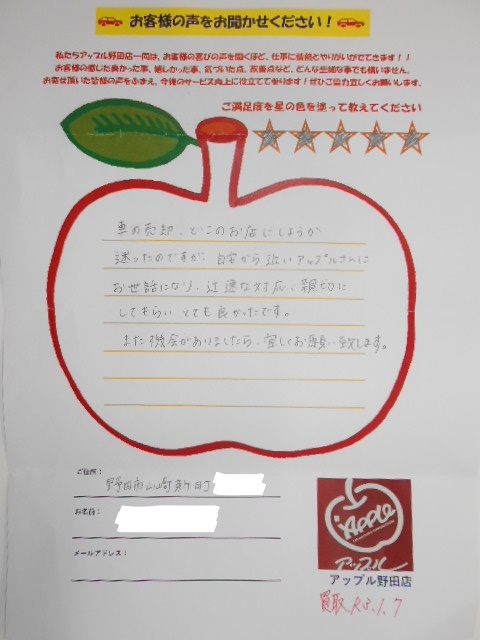 お客様の声をお聞かせください!
私たちアップル野田店一同は、お客様の喜びの声を聞くほど、仕事に情熱とやりがいがでてきます!!
お客様の感じた良かった事、嬉しかった事、気づいた点、改善点など、どんな些細な事でも構いません。
お寄せ頂いた皆様の声をふまえ、今後のサービス向上に役立てて参ります!ぜひご協力宜しくお願いします。
ご満足度を星の色を塗って教えてください
車の売却、どこのお店にしようか
迷ったのですが、自宅から近いアップルさんに
お世話になり、迅速な対応、親切に
してもらい とても良かったです。
また機会がありましたら、宜しくお願い致します。
ご住所:
野田市山崎
お名前:
メールアドレス:
Apple
アップル
アップル野田店
買取 R3.1.7